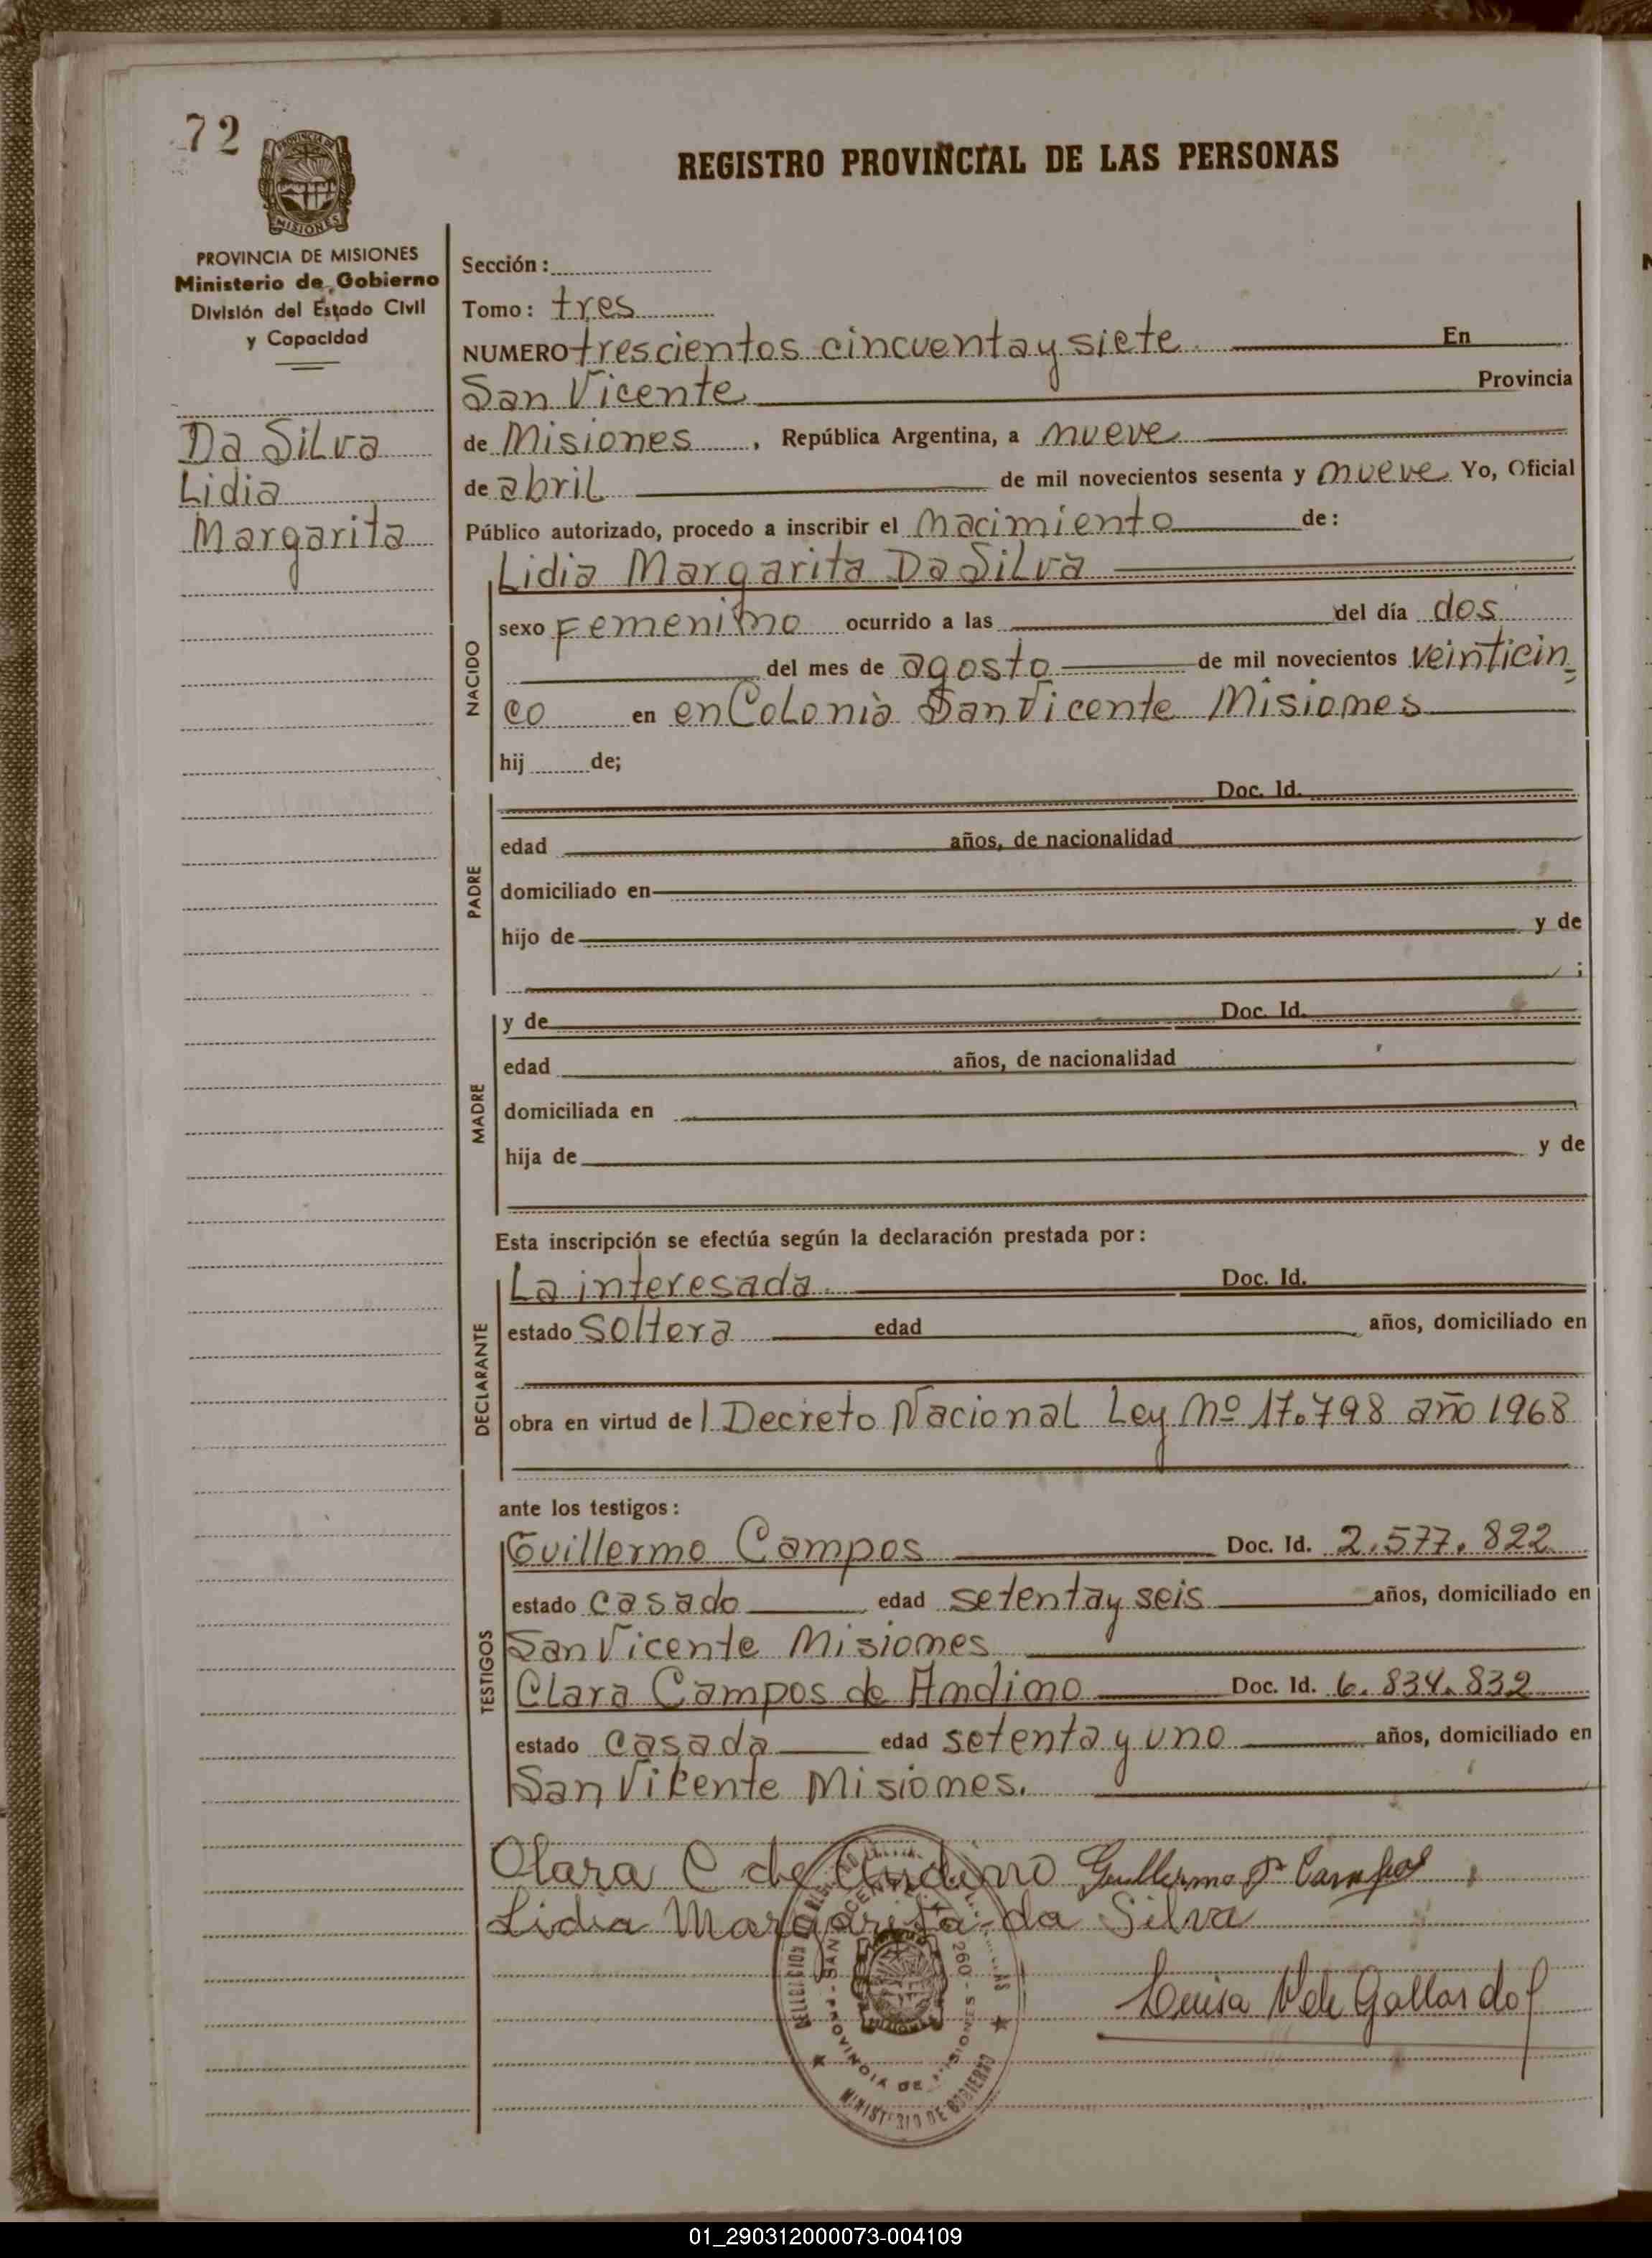 72
REGISTRO PROVINCIAL DE LAS PERSONAS
PROVINCIA DE
MISIONES
PROVINCIA DE MISIONES
Ministerio de Gobierno
División del Estado Civil
y Capacidad
Da Silva
Lidia
Margarita
Sección:
Tomo: tres
NUMERO trescientos cincuenta y siete En
San Vicente Provincia
de Misiones, República Argentina, a nueve
de abril de mil novecientos sesenta y nueve Yo, Oficial
Público autorizado, procedo a inscribir el nacimiento de:
NACIDO
Lidia Margarita Da Silva
sexo Femenino ocurrido a las del día dos
del mes de agosto de mil novecientos veinticin=
co en en Colonia San Vicente Misiones
hij de;
PADRE
Doc. Id.
edad años, de nacionalidad
domiciliado en
hijo de y de
;
MADRE
y de Doc. Id.
edad años, de nacionalidad
domiciliada en
hija de y de
Esta inscripción se efectúa según la declaración prestada por:
DECLARANTE
La interesada Doc. Id.
estado soltera edad años, domiciliado en
obra en virtud del Decreto Nacional Ley Nº 17.798 año 1968
ante los testigos:
TESTIGOS
Guillermo Campos Doc. Id. 2.577.822
estado casado edad setenta y seis años, domiciliado en
San Vicente Misiones
Clara Campos de Andino Doc. Id. 6.834.832
estado casada edad setenta y uno años, domiciliado en
San Vicente Misiones.
Clara C de Andino Guillermo Campos
Lidia Margarita da Silva
Luisa V de Gallardo
PROVINCIA DE MISIONES
MINISTERIO DE GOBIERNO
01_290312000073-004109